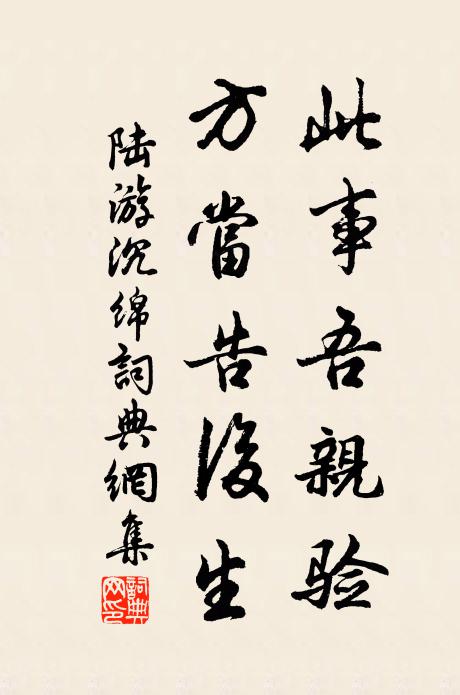 此事吾親验
方當告後生
陆游沉绵詞典網集
詞典网印